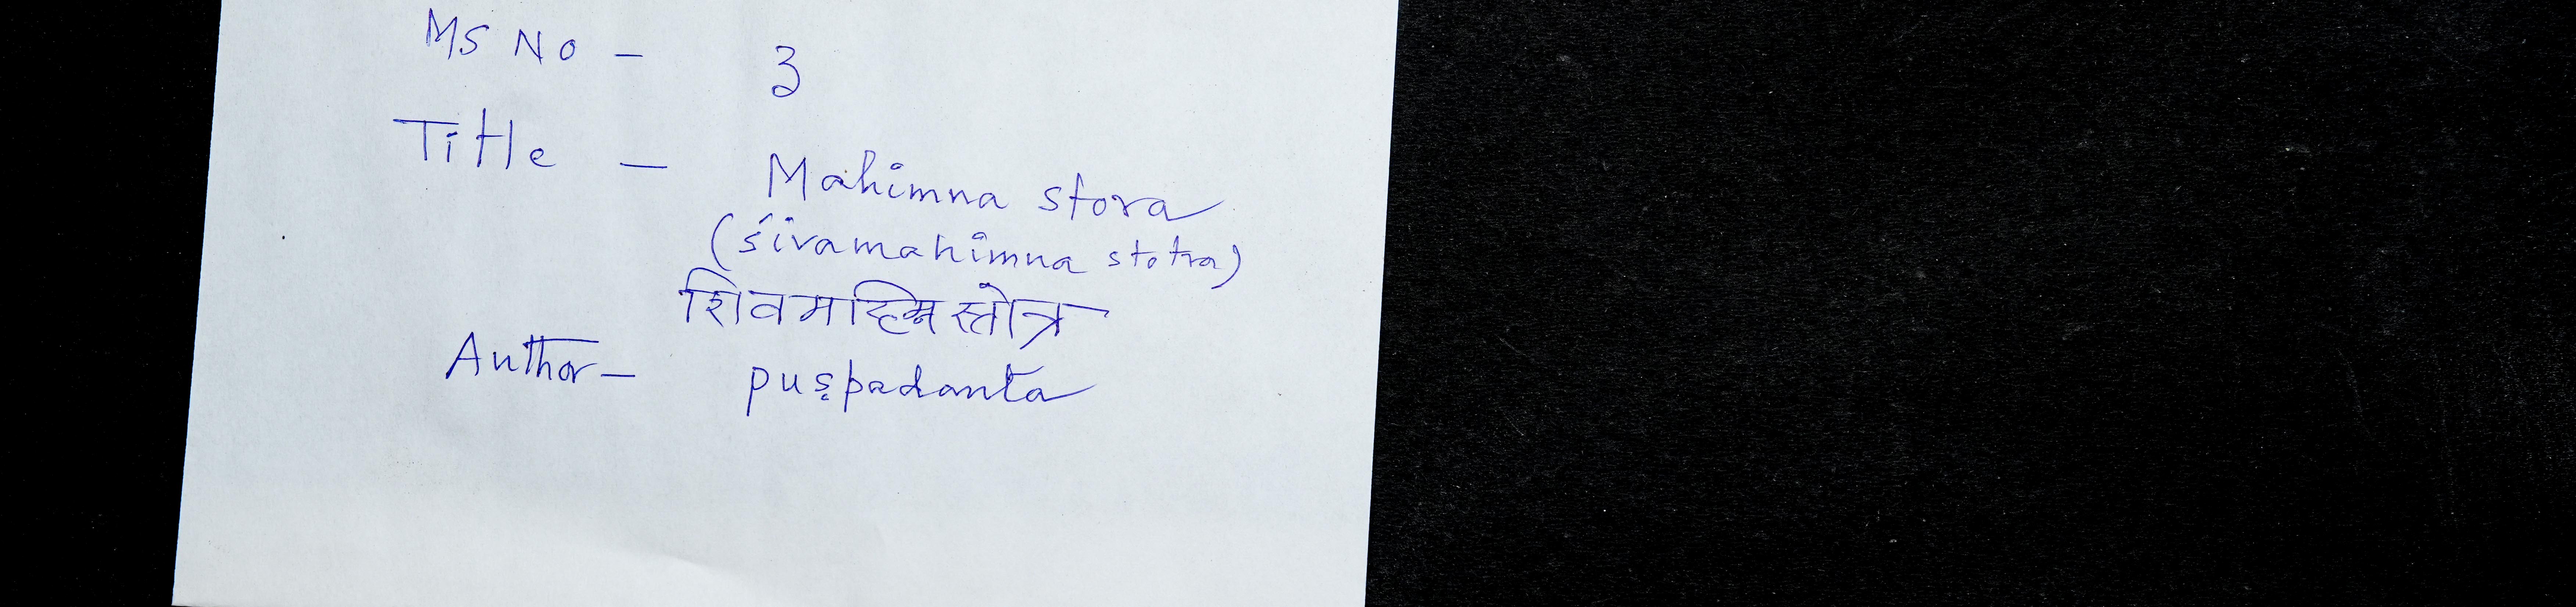 MS No - 3
Title - Mahimna stora
(śivamahimna stotra)
शिवमहिम्नस्तोत्र
Author - puṣpadanta